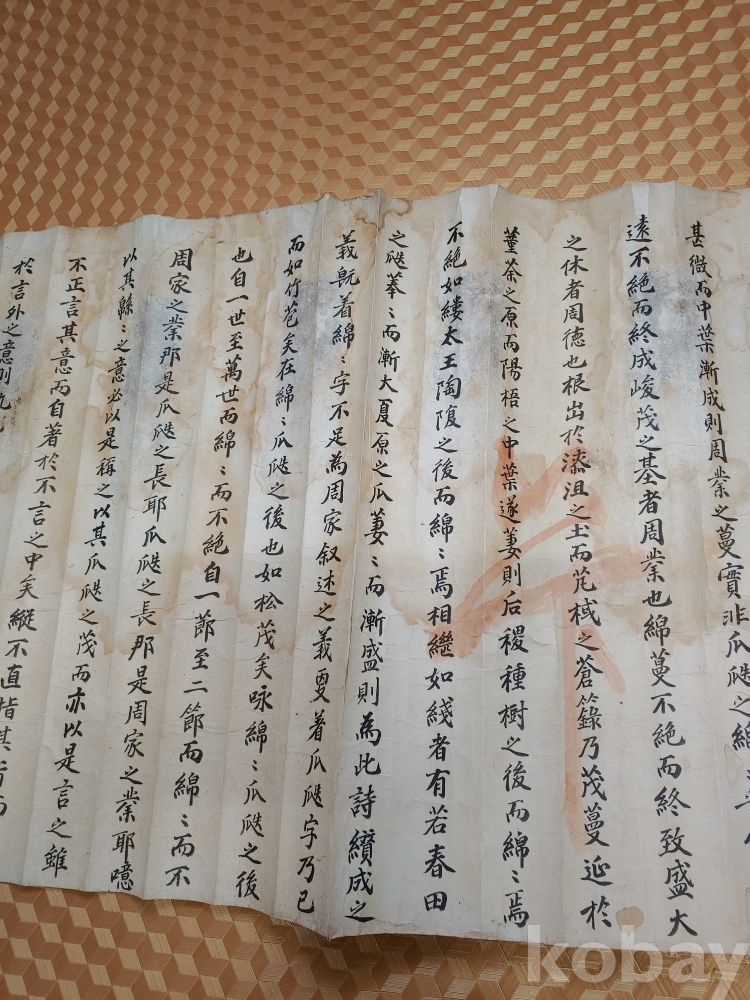 甚微而中葉漸成則周業之蔓實非瓜瓞之綿
遠不絶而終成峻茂之基者周業也綿蔓不絶而終致盛大
之休者周德也根出於漆沮之土而芃棫之蒼籙乃茂蔓延於
菫荼之原而陽梧之中葉遂萋則后稷種樹之後而綿〻焉
不絶如縷太王陶復之後而綿〻焉相繼如綫者有若春田
之瓞菶〻而漸大夏原之瓜萋〻而漸盛則為此詩纘成之
義旣着綿〻字不足為周家叙述之義更着瓜瓞字乃已
而如竹苞矣在綿〻瓜瓞之後也如松茂矣咏綿〻瓜瓞之後
也自一世至萬世而綿〻而不絶自一節至二節而綿〻而不
周家之業那是瓜瓞之長耶瓜瓞之長那是周家之業耶噫
以其緜〻之意必以是稱之以其瓜瓞之茂而亦以是言之雖
不正言其意而自著於不言之中矣縱不直指其
於言外之意則
kobay